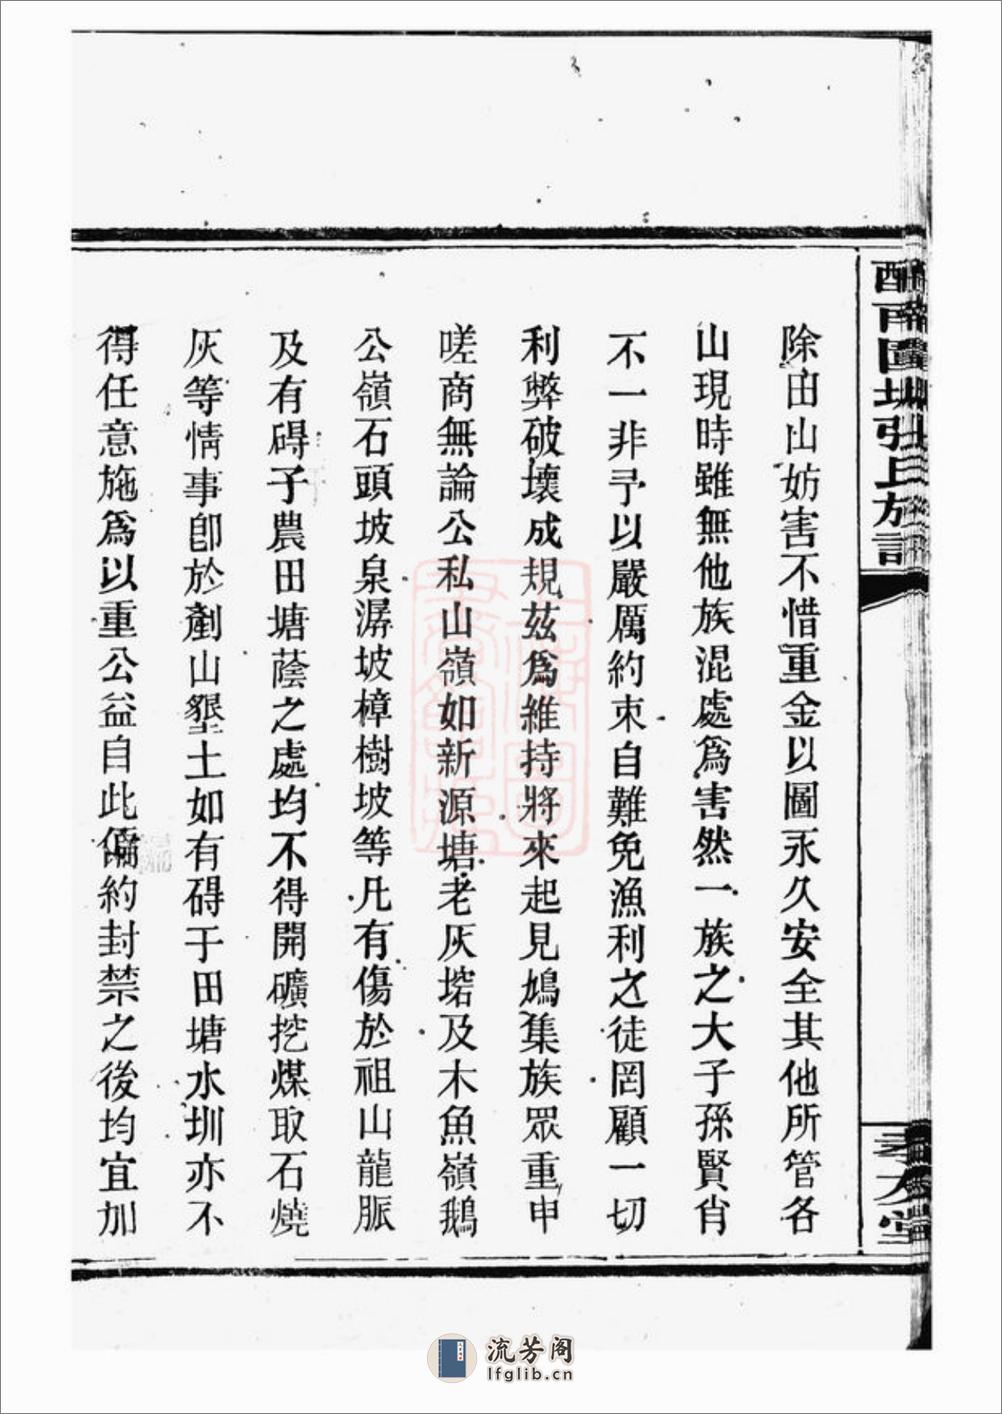 除由山妨害不惜重金以圖永久安全其他所管各
山現時雖無他族混處爲害然一族之大子孫賢肖
不一非予以嚴厲約束自難免漁利之徒罔顧一切
利弊破壞成規茲爲維持將來起見鳩集族眾重申
嗟商無論公私山嶺如新源塘老灰塔及木魚嶺鵝
公嶺石頭坡泉潺坡樟樹坡等凡有傷於祖山龍脈
及有碍予農田塘蔭之處均不得開礦挖煤取石燒
灰等情事卽於剷山墾土如有碍于田塘水圳亦不
得任意施爲以重公益自此偏約封禁之後均宜加
張氏族
堂
流芳阁
lfglib.cn